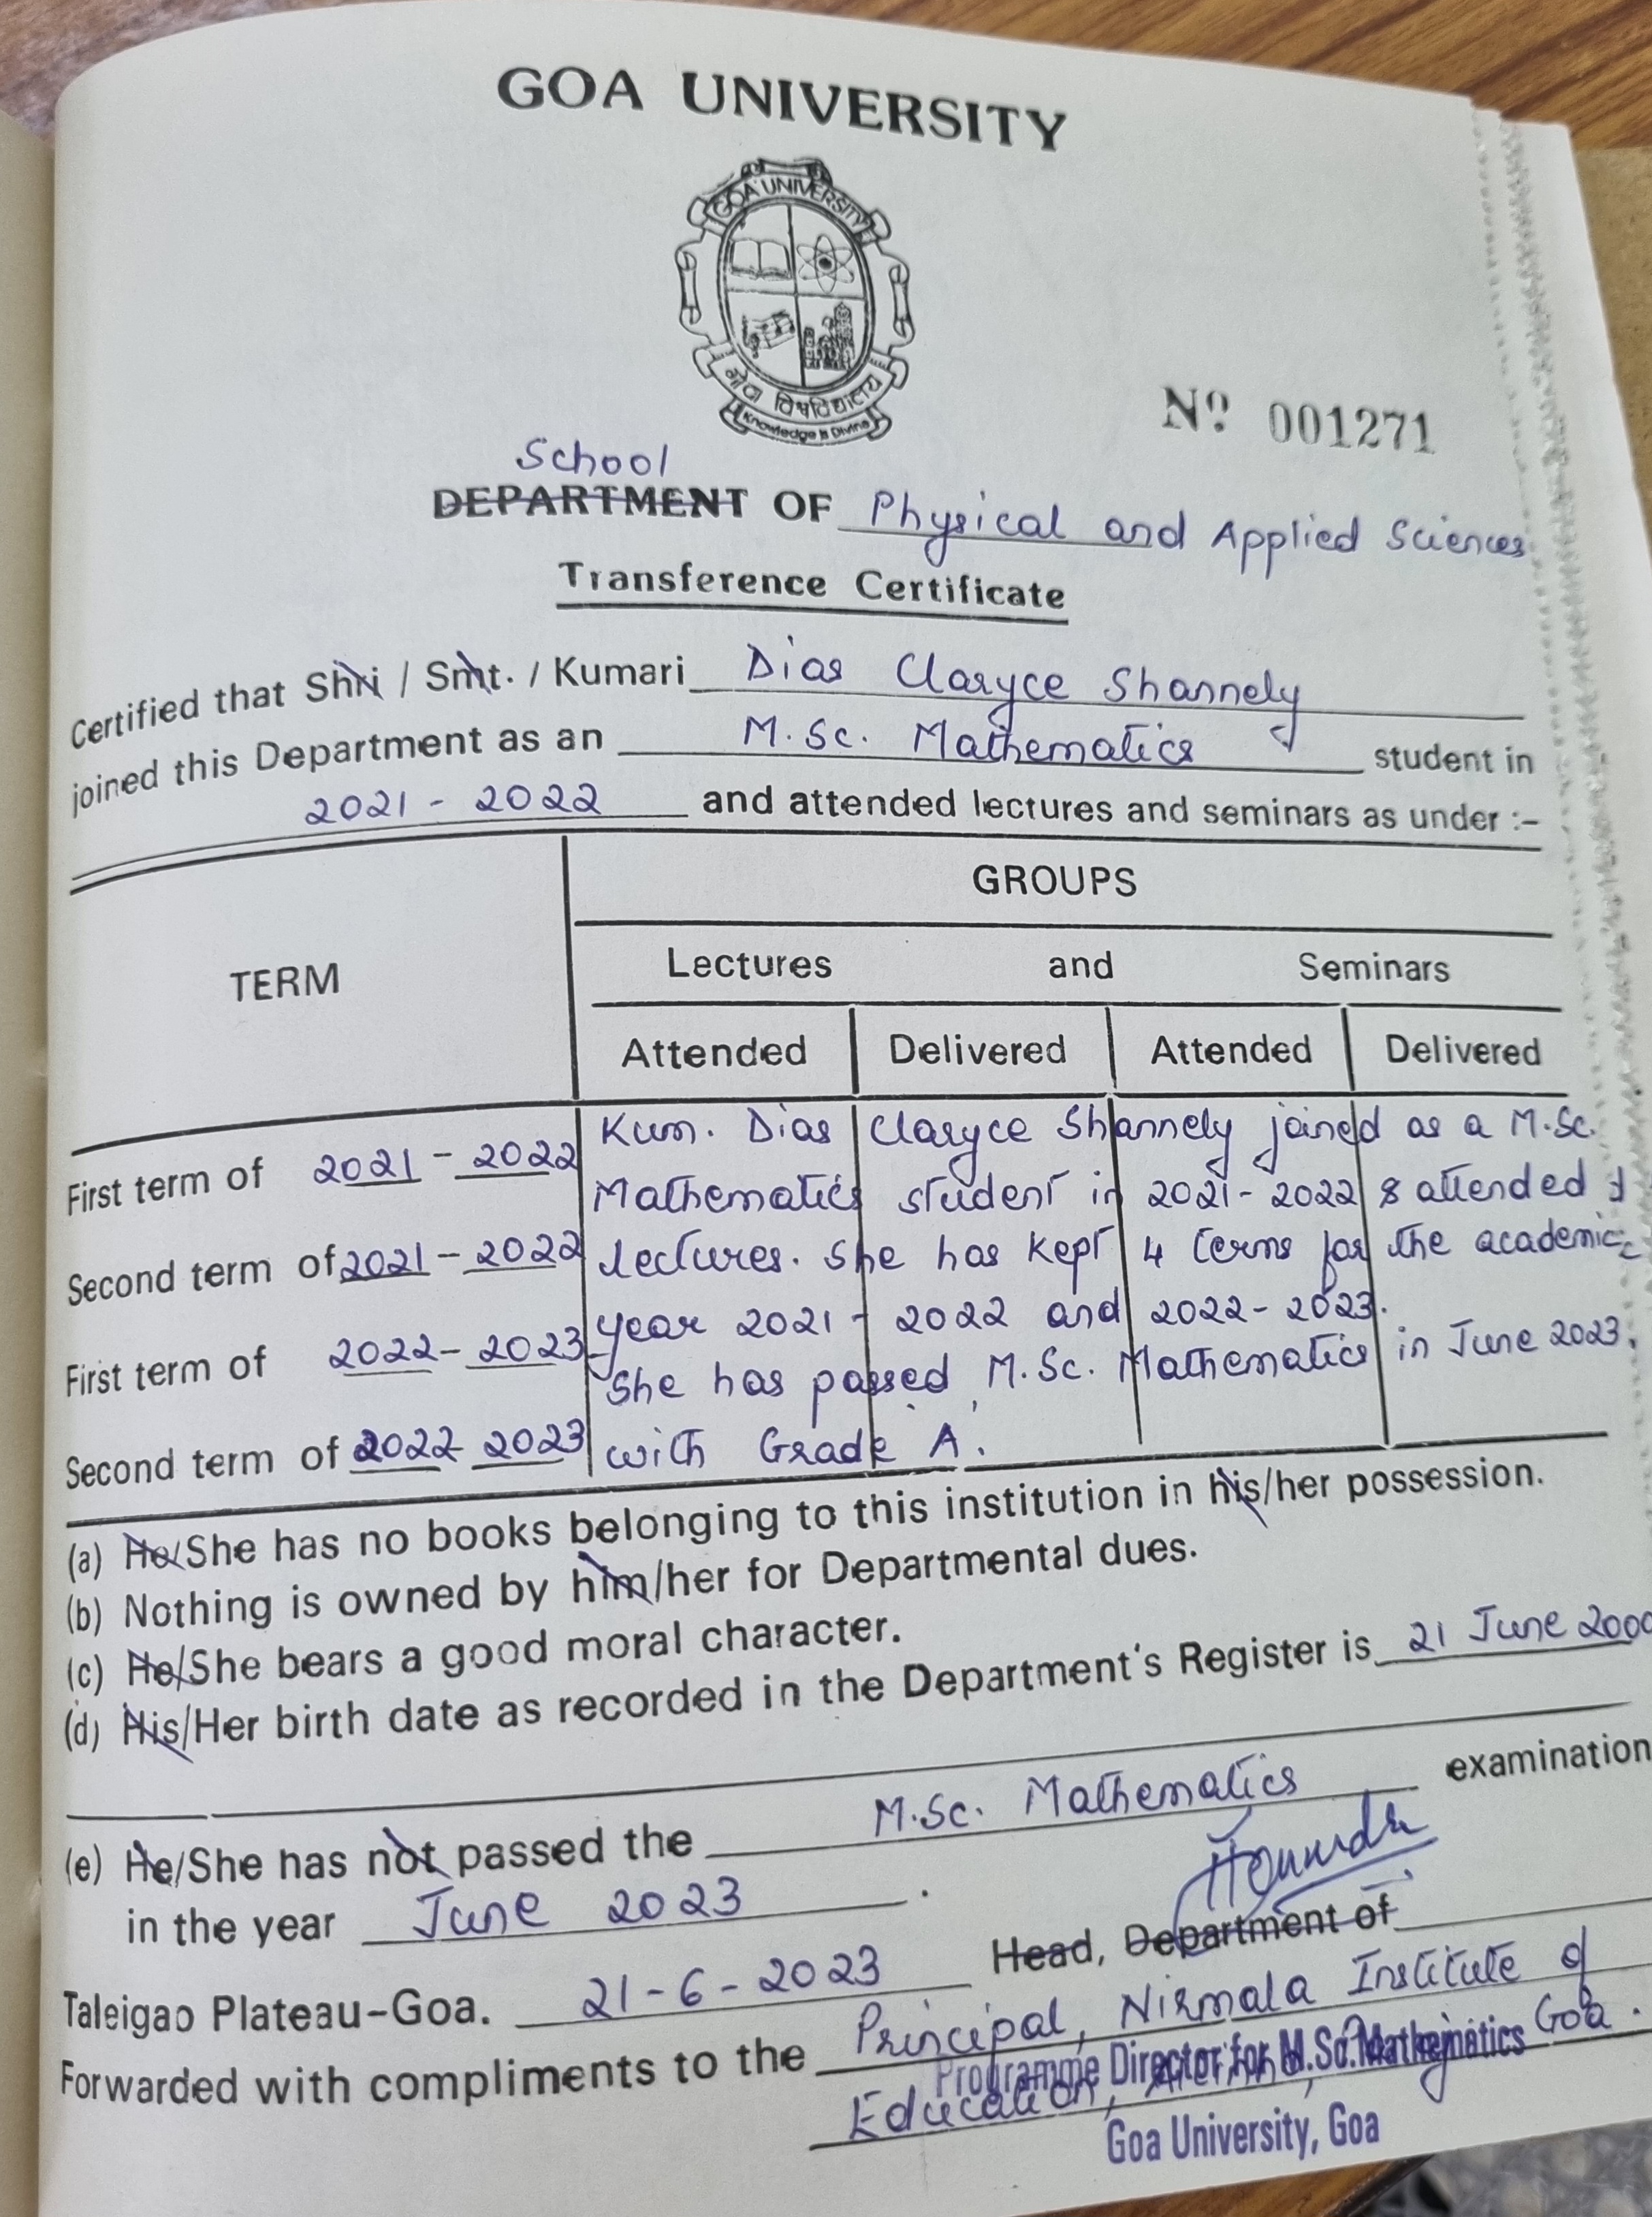 GOA UNIVERSITY
GOA UNIVERSITY
गोवा विश्वविद्यालय
Knowledge is Divine
Nº 001271
School
DEPARTMENT OF Physical and Applied Sciences
Transference Certificate
Certified that Shri / Smt. / Kumari Dias Claryce Shannely
joined this Department as an M.Sc. Mathematics student in
2021 - 2022 and attended lectures and seminars as under :-
TERM
GROUPS
Lectures and Seminars
Attended Delivered Attended Delivered
First term of 2021 - 2022 Kum. Dias Claryce Shannely joined as a M.Sc.
Mathematics student in 2021-2022 & attended
Second term of 2021 - 2022 lectures. She has kept 4 terms for the academic
year 2021 - 2022 and 2022-2023.
First term of 2022 - 2023
She has passed M.Sc. Mathematics in June 2023.
Second term of 2022 2023 with Grade 'A'.
(a) He/She has no books belonging to this institution in his/her possession.
(b) Nothing is owned by him/her for Departmental dues.
(c) He/She bears a good moral character.
(d) His/Her birth date as recorded in the Department's Register is 21 June 2000
(e) He/She has not passed the M.Sc. Mathematics examination
in the year June 2023 .
Head, Department of
Taleigao Plateau-Goa. 21-6-2023
Forwarded with compliments to the Principal, Nirmala Institute of
Education, Goa.
Programme Director for M.Sc. Mathematics
Goa University, Goa